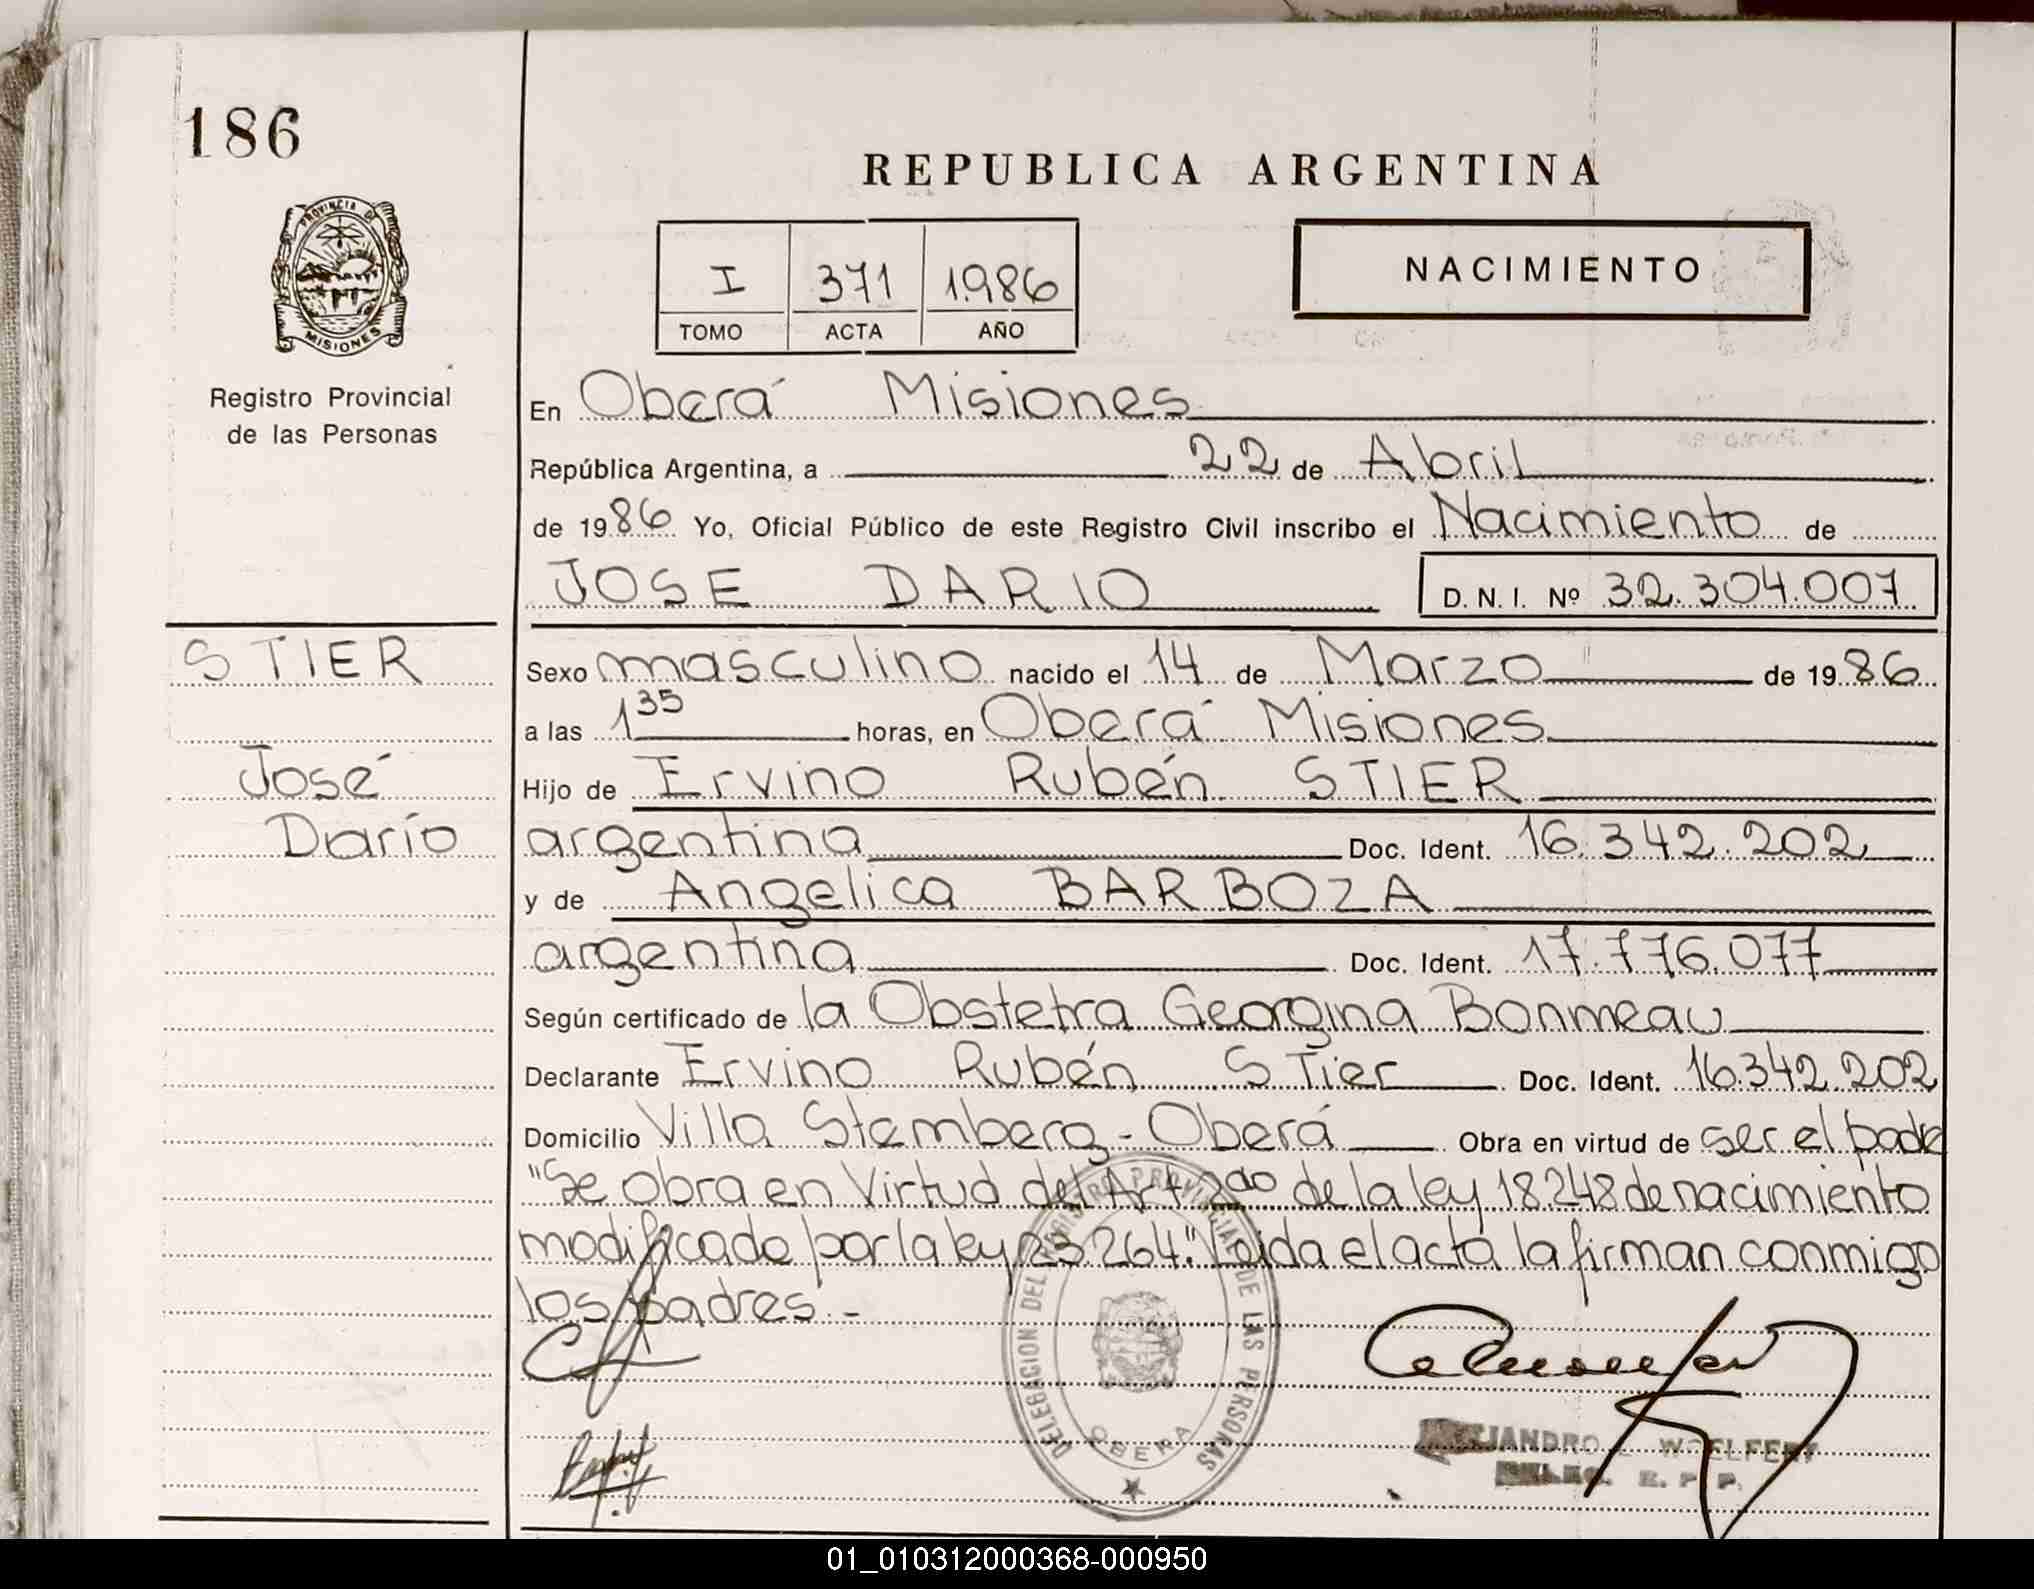 186
REPUBLICA ARGENTINA
PROVINCIA DE
MISIONES
I 371 1986
TOMO ACTA AÑO
NACIMIENTO
Registro Provincial
de las Personas
En Oberá Misiones
República Argentina, a 22 de Abril
de 1986 Yo, Oficial Público de este Registro Civil inscribo el Nacimiento de
JOSE DARIO D. N. I. Nº 32.304.007
STIER
José
Darío
Sexo masculino nacido el 14 de Marzo de 1986
a las 1 35 horas, en Oberá Misiones
Hijo de Ervino Rubén STIER
argentina Doc. Ident. 16.342.202
y de Angelica BARBOZA
argentina Doc. Ident. 17.776.077
Según certificado de la Obstetra Georgina Bonmeau
Declarante Ervino Rubén STier Doc. Ident. 16.342.202
Domicilio Villa Stemberg - Oberá Obra en virtud de ser el padre
"Se obra en Virtud del Art 2do de la ley 18.248 de nacimiento
modificado por la ley 23.264." Leida el acta la firman conmigo
los padres.-
DELEGACION DEL REGISTRO PROVINCIAL DE LAS PERSONAS
OBERA
WOELFERT
R. P. P.
01_010312000368-000950